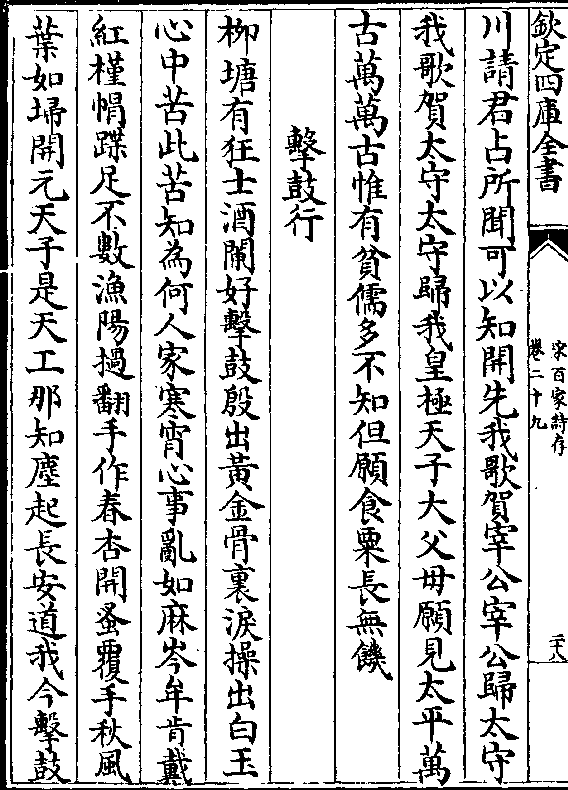 欽定四庫全書
宋百家詩存
卷二十九
二十八
川請君占所聞可以知開先我歌賀宰公宰公歸太守
我歌賀太守太守歸我皇極天子大父母願見太平萬
古萬萬古惟有貧儒多不知但願食粟長無饑
擊鼓行
栁塘有狂士酒闌好擊鼓殷出黃金骨裏淚操出白玉
心中苦此苦知為何人家寒宵心事亂如麻岑牟肯戴
紅槿㡓蹀足不數漁陽撾翻手作春杏開蚤覆手秋風
葉如埽開元天子是天工那知塵起長安道我今擊鼓